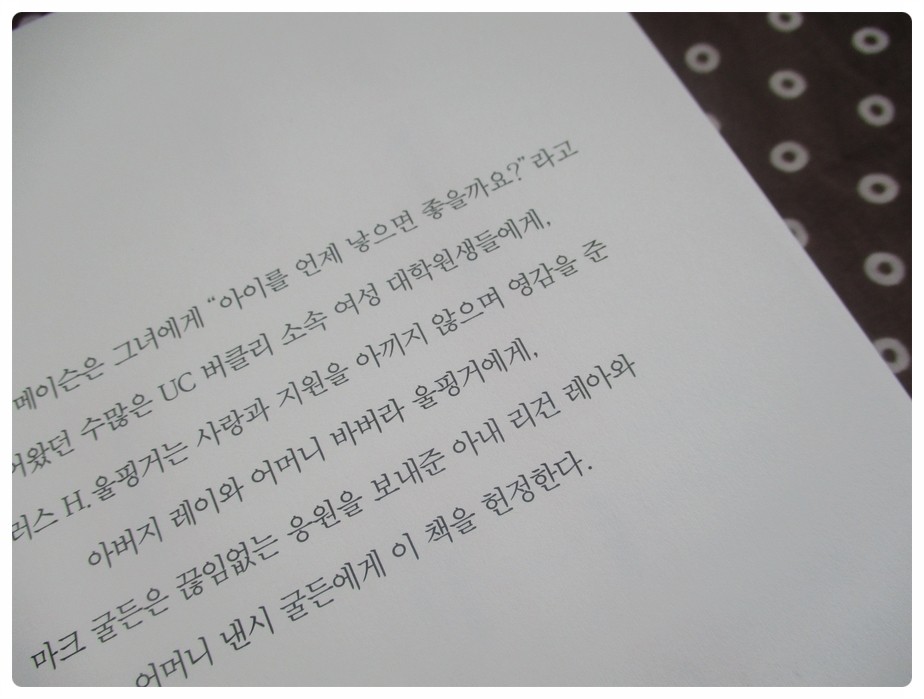 메이슨은 그녀에게 “아이를 언제 낳으면 좋을까요?”라고
어왔던 수많은 UC 버클리 소속 여성 대학원생들에게,
러스 H. 울핑거는 사랑과 지원을 아끼지 않으며 영감을 준
아버지 레이와 어머니 바버라 울핑거에게,
마크 굴든은 끊임없는 응원을 보내준 아내 리건 레아와
어머니 낸시 굴든에게 이 책을 헌정한다.